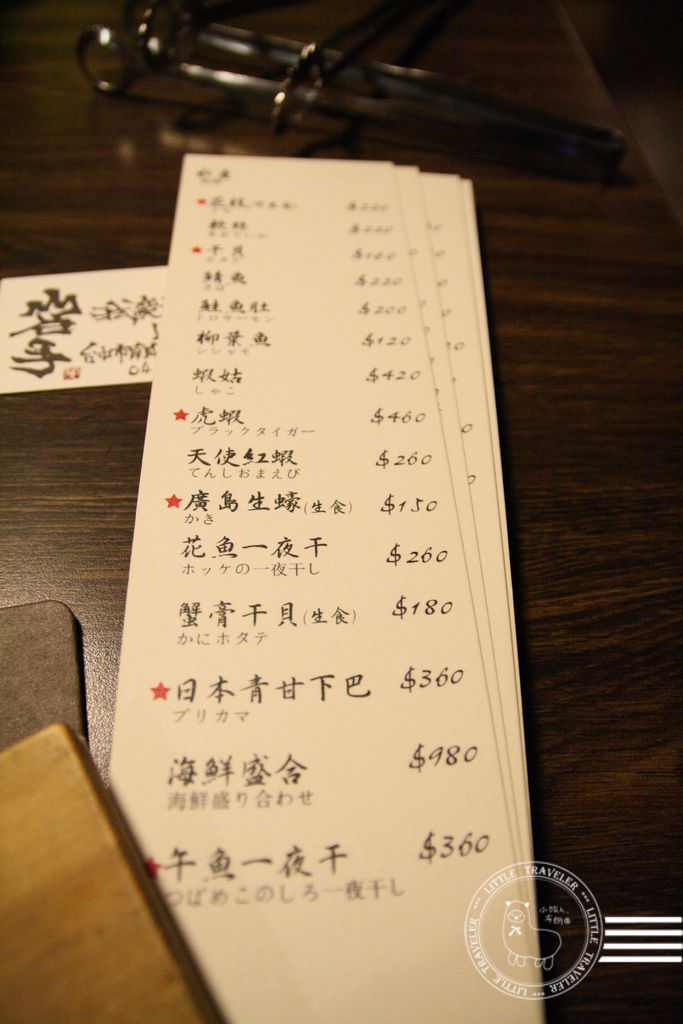 $220
軟絲
$220
干貝
$160
鯖魚
さば
$220
鮭魚肚
トロサーモン
$200
柳葉魚
シシャモ
$120
蝦姑
しゃこ
$420
虎蝦
ブラックタイガー
$460
天使紅蝦
てんしおまえび
$260
廣島生蠔(生食)
かき
$150
花魚一夜干
ホッケの一夜干し
$260
蟹膏干貝(生食)
かにホタテ
$180
日本青甘下巴
ブリカマ
$360
海鮮盛合
海鮮盛り合わせ
$980
午魚一夜干
つばめこのしろ一夜干し
$360
岩手
04
LITTLE TRAVELER
LITTLE TRAVELER
LITTLE TRAVELER
小旅人